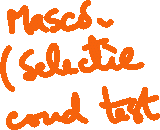 Mascs
(Selectie
cond test